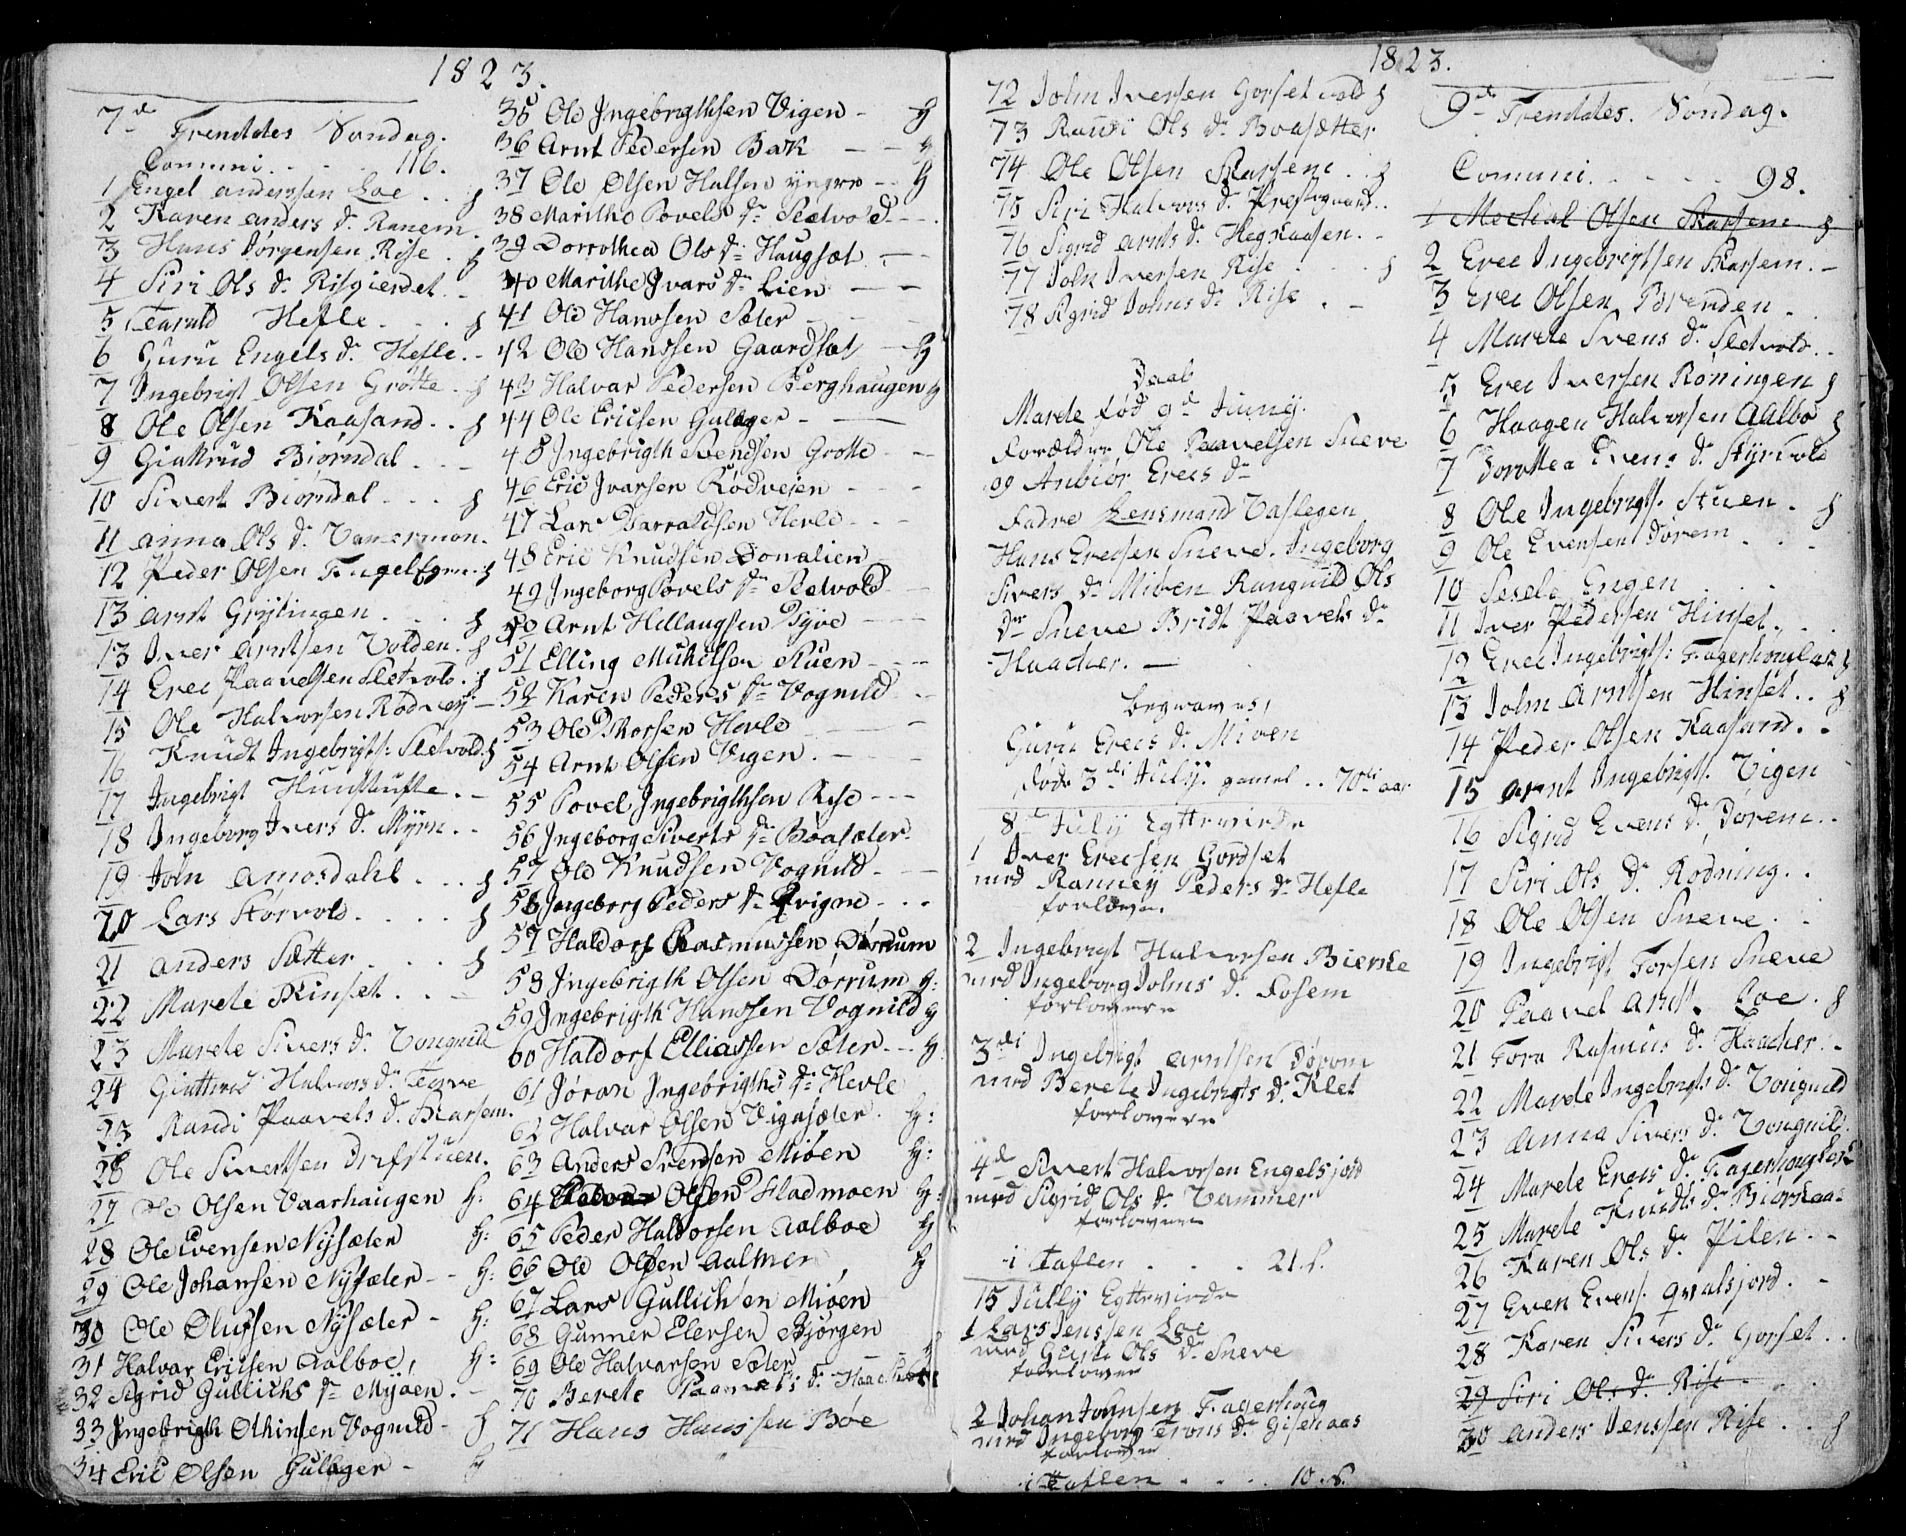 1823.
7de Trenitates Søndag.
Comuni . . . 116.
1 Engel anderssen Loe . . H
2 Karen anders Dr Ranem.
3 Hans Jørgensen Rise . H
4 Siri Ols Dr Risgierdet
5 Tarald Hefle . . . H
6 Guru Engels Dr Hefle . -
7 Ingebrigt Olsen Grøtte . H
8 Ole Olsen Kaasand . . H
9 Giøttrud Biørndal . . -
10 Sivert Biørndal . . . H
11 anna Ols Dr Vammermon.
12 Peder Olsen Fugelsøen . H
13 arnt Grytingen . . . H
13 Iver arntsen Volden . H
14 Erec Paavelsen Sletvold . H
15 Ole Halvorsen Rødvey -
16 Knudt Ingebrigts: Sletvold H
17 Ingebrigt Hundtufte . -
18 Ingeborg Ivers Dr Myrn . .
19 Joln amosdahl . . . H
20 Lars Storvold . . . . H
21 anders Sætter . . . H
22 Marete Skinset . . -
23 Marete Sivers Dr Vongnild
24 Giøttrud Halvors Dr Teøve
25 Randi Paavels Dr Skarsem.
26 Ole Sivertsen Drifstuen.
27 Ole Olsen Vaarhaugen H:
28 Ole Evensen Nysæter H:
29 Ole Johansen Nysæter - - H:
30 Ole Olufsen Nysæter - H:
31 Halvar Ericsen Aalboe, H:
32 Sigrid Gullichs Dr Myøen . -
33 Ingebrigth Othinsen Vognild - H
34 Eric Olsen Gulager - H
35 Ole Ingebrigthsen Vigen - H
36 Arnt Pedersen Bak - - H
37 Ole Olsen Halsen yngre - - H
38 Marithe Povels Dr Sletvold - - .
39 Dorrothea Ols Dr Haugset . - -
40 Marithe Ivars Dr Lien - -
41 Ole Hansen Sæter - - -
42 Ole Hanssen Gaardset - H
43 Halvar Pedersen Berghaugen H
44 Ole Ericsen Gulager - - -
45 Ingebrigth Svendsen Grøtte - -
46 Eric Ivarsen Rødveien - - -
47 Lars Harraldsen Hevle - . -
48 Eric Knudsen Donalien -
49 Ingeborg Povels Dr Sletvold - -
50 Arnt Hellaugsen Dyve - - -
51 Elling Michelsen Stuen - - -
52 Karen Peders Dr Vognild - -
53 Ole Thorsen Hevle - -
54 Arnt Olsen Vigen . - - -
55 Povel Ingebrigthsen Rise - - -
56 Ingeborg Siverts Dr Boasæter -
57 Ole Knudsen Vognild - -
56 Ingeborg Peders Dr Qvigne - . .
57 Haldorf Rasmussen Dørrum
58 Ingebrigth Olsen Dørrum H:
59 Ingebrigth Hanssen Vognild H
60 Haldorf Elliassen Sæter - - H
61 Jøran Ingebrigths Dr Hevle
62 Halvar Olsen Vignsæter . H:
63 Anders Svendsen Miøen H:
64 Olsen Stadmoen H:
65 Peder Haldorsen Aalboe H
66 Ole Olsen Aalmen H
67 Lars Gullichsen Miøen
68 Gunner Elersen Bjørgen
69 Ole Halvarsen Sæter - - H
70 Berete Paavels Dr Haacker
71 Hans Hanssen Bøe
1823.
72 Joln Iversen Gorset vold H
73 Randi Ols Dr Boasætter
74 Ole Olsen Skarsem . . H
75 Siri Halvors Dr Prestgaard . .
76 Sigrid arnts Dr Hegkaasen . -
77 Joln Iversen Rise . . . . H
78 Sigrid Jolns Dr Rise . -
Daab
Marete fød 9de Juny.
Forældre Ole Paavelsen Sneve
og Anbiør Erecs Dr
Fadre Lensmand Vaslegen
Hans Erecsen Sneve. Ingeborg
Sivers Dr Miøen Ranguild Ols
Dr Sneve Bridt Paavels Dr
Haacker. —
Begraves,
Guru Erecs Dr Miøen
døde 3di July. gamel . . 70ti aar
8de July Egtteviede
1 Iver Erecsen Gordset
med Ranney Peders Dr Hefle
forlovere
2 Ingebrigt Halvorsen Bierke
med Ingeborg Jolns Dr Fosem
forlovere
3di Ingebrigt arntsen Dørom
med Berete Ingebrigts Dr Klet
forlovere
4de Sivert Halvorsen Engelsjord
med Sigrid Ols Dr Vammer
forlovere
i Taflen . . . . 21. s.
15 Jully Egtteviede
1 Lars Jenssen Loe
med Guru Ols Dr Sneve
forlovere
2 Johan Jolnsen Fagerhoug
med Ingeborg Trons Dr Gisehaas
forlovere
i Taflen . . . . 10 s.
9de Trenitates. Søndag.
Comuni. . . . . . 98.
1 Mechal Olsen Skarsem H
2 Erec Ingebrigtsen Skarsem . -
3 Erec Olsen Brenden . .
4 Marete Svens Dr Sletvold . .
5 Erec Iversen Røningen H
6 Haagen Halvorsen Aalbo H
7 Dorottea Evens Dr Styrvold
8 Ole Ingebrigts. Stuen . H
9 Ole Evensen Dørem . . .
10 Sesele Engen . . .
11 Iver Pedersen Hinset . . .
12 Erec Ingebrigts: Fagerhouglas H
13 Joln arntsen Hinset . . H
14 Peder Olsen Kaasand . .
15 arnt Ingebrigts. Vigen
16 Sigrid Evens Dr Dørem . .
17 Siri Ols Dr Rødning . .
18 Ole Olsen Sneve . .
19 Ingebrigt Torsen Sneve
20 Paavel arnts. Loe . H
21 Tora Rasmus Dr Haacker . .
22 Marete Ingebrigts Dr Vongnild
23 anna Sivers Dr Vongnild.
24 Marete Erecs Dr Fagerhouglas
25 Marete Knudts Dr Biørkaas
26 Karen Ols Dr Pilen . -
27 Even Evens. qvalsjord . -
28 Karen Sivers Dr Gorset . .
29 Siri Ols Dr Rise . .
30 anders Jenssen Rise . . H